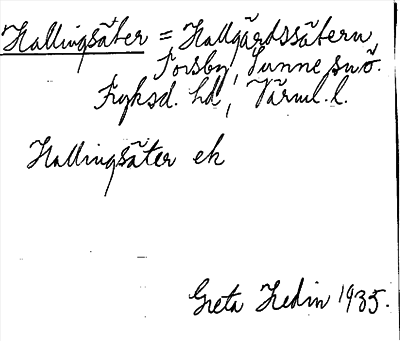 Hallingsäter = Hallgårdssätern,
Torsby, Sunne snö.
Fryksd. hd, Värml. l.
Hallingsäter ek
Greta Hedin 1935.